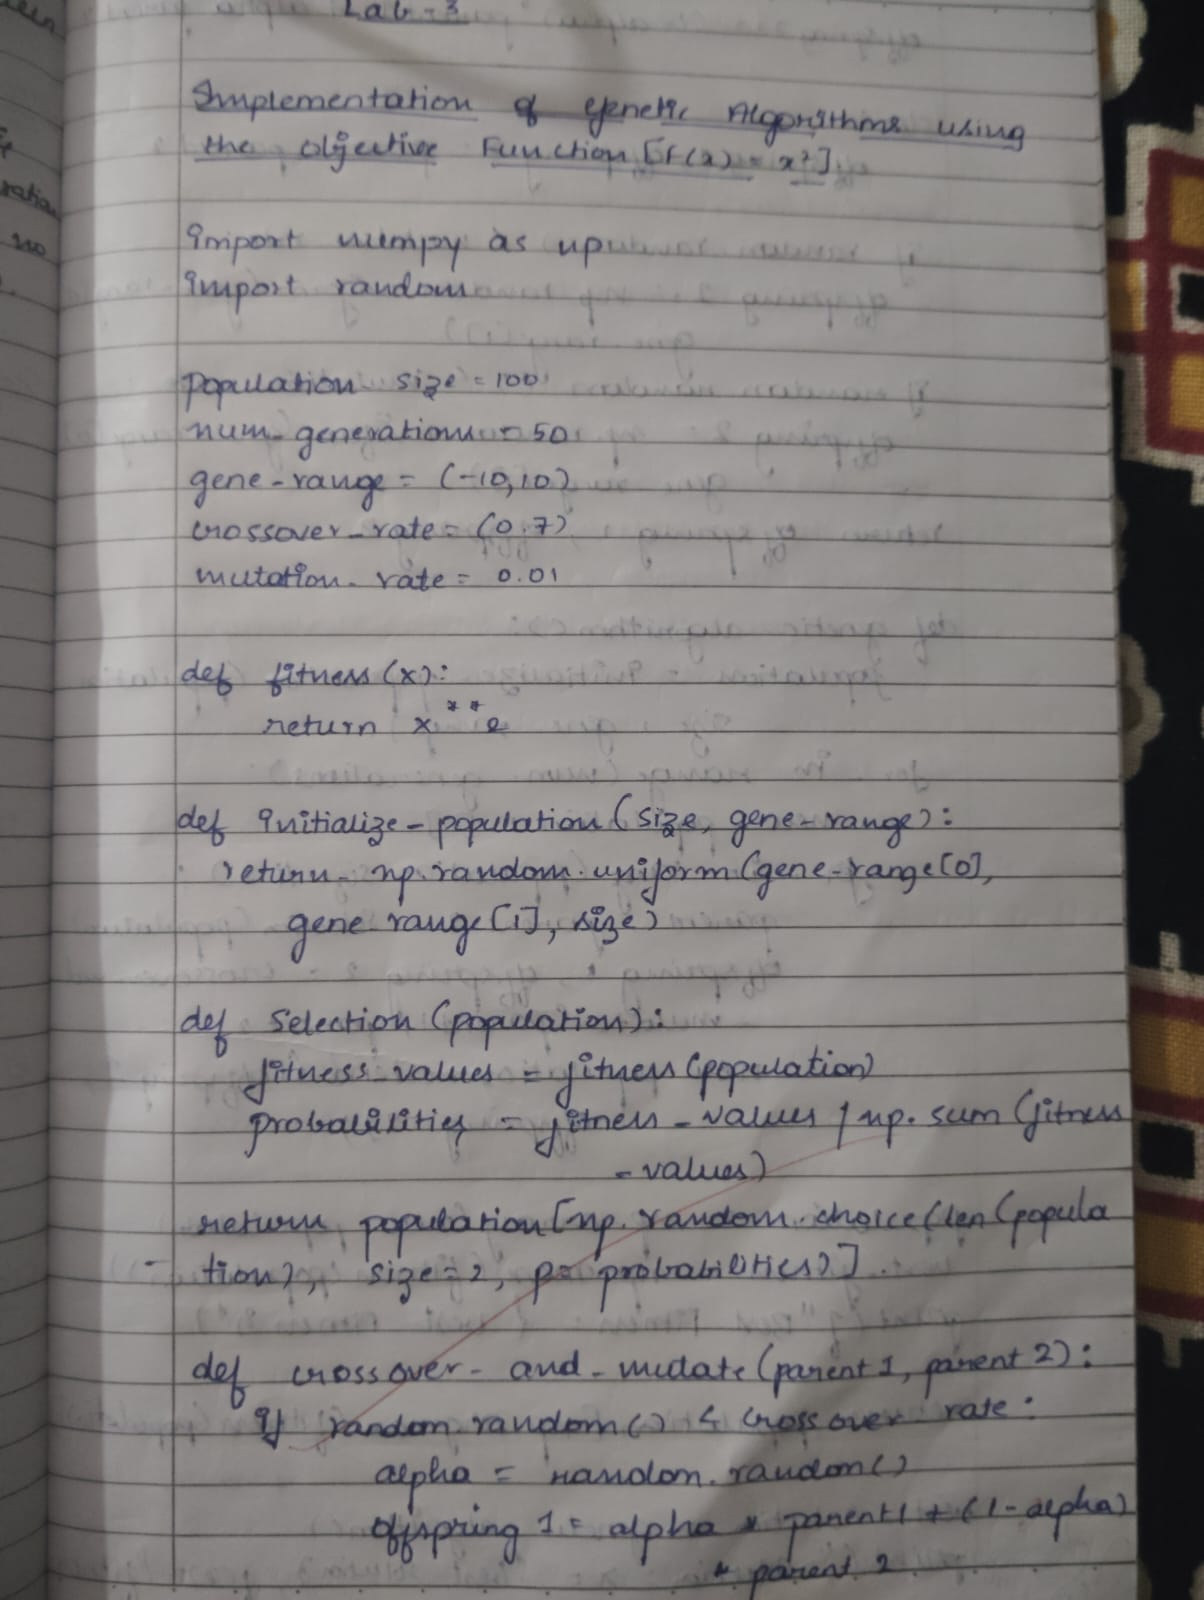 Lab-3
Implementation of Genetic Algorithms using
the objective Function [f(x) = x²]
import numpy as np
import random
population size = 100
num_generations = 50
gene-range = (-10,10)
crossover_rate = (0.7)
mutation_rate = 0.01
def fitness(x):
return x**2
def initialize-population(size, gene-range):
return np.random.uniform(gene-range[0],
gene range[1], size)
def selection (population):
fitness_values = fitness(population)
probabilities = fitness-values / np.sum(fitness
-values)
return population[np.random.choice(len(popula
tion), size=2, p=probabilities)].
def crossover-and-mutate(parent1, parent 2):
if random.random() < crossover rate:
alpha = random.random()
offspring 1 = alpha * parent1 + (1-alpha)
* parent 2